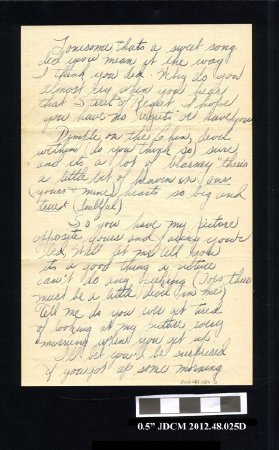 Lonesome thats a sweet song
did you mean it the way
I think you did. Why do you
almost cry when you hear
that Street of Regret I hope
you have no regrets or have you
Dimple on the Chin, devil
within (do you think so) sure
and its a lot of blarney "theres
a little bit of heaven in our
(yours + mine) hearts so big and
true (truthful)
So you have my picture
opposite yours and along your
bed, well let me tell you
its a good thing a picture
can't do any peeping (Oops there
must be a little devil in me)
Tell me do you ever get tired
of looking at my picture every
morning when you get up
I'll bet you'd be surprised
if you got up some morning
0.5" JDCM 2012.48.025D